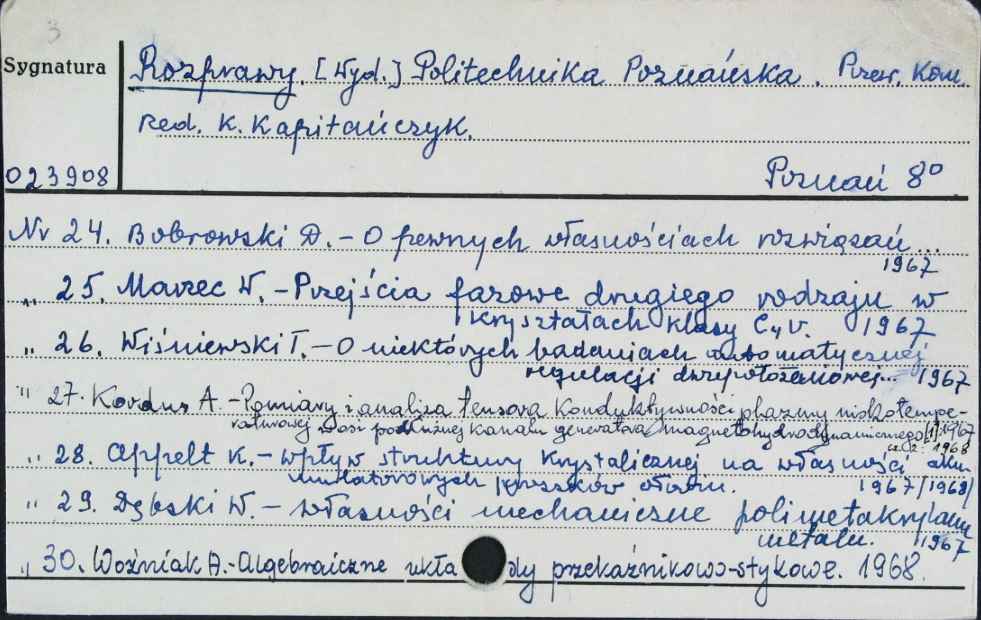 3
Sygnatura
Rozprawy. [Wyd.] Politechnika Poznańska. Przew. Kom.
Red. K. Kapitańczyk.
023908
Poznań 8°
Nr 24. Bobrowski D. – O pewnych własnościach rozwiązań...
1967
" 25. Marzec W. – Przejścia fazowe drugiego rodzaju w
kryształach klasy C₄V. 1967
" 26. Wiśniewski T. – O niektórych badaniach automatycznej
regulacji dwupołożeniowej... 1967
" 27. Kordus A. – Pomiary i analiza tensora konduktywności plazmy niskotempe-
raturowej wosi podłużnej kanału generatora magnetohydrodynamicznego [1] 1967
cz. 2. 1968
" 28. Appelt K. – Wpływ struktury krystalicznej na własności aku-
mulatorowych proszków ołowiu. 1967/1968/
" 29. Dębski W. – Własności mechaniczne polimetakrylanu
metalu. 1967
" 30. Woźniak A. – Algebraiczne układy przekaźnikowo-stykowe. 1968.